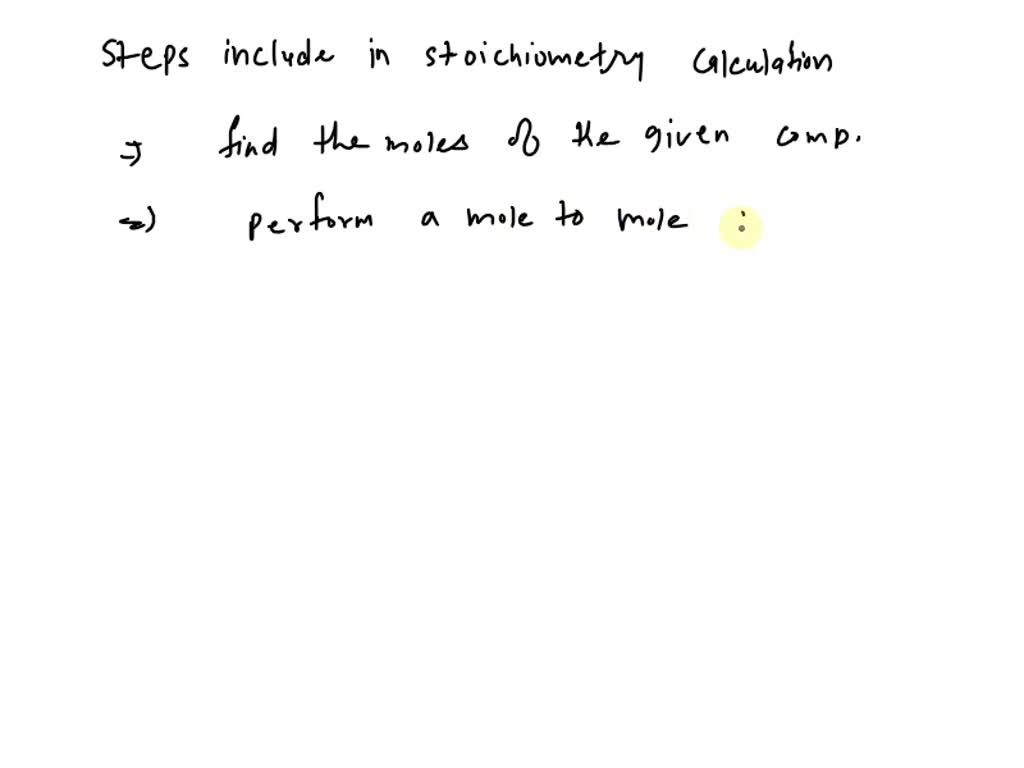 Steps include in stoichiometry calculation
⇒ find the moles of the given comp.
⇒ perform a mole to mole